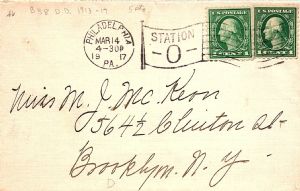 B58 D.D. 1913-17
PHILADELPHIA
MAR 14
4-30P
1917
PA.
STATION
O
U.S. POSTAGE
U.S. POSTAGE
Miss M. J. Mc Keon
564½ Clinton St-
Brooklyn. N. Y.